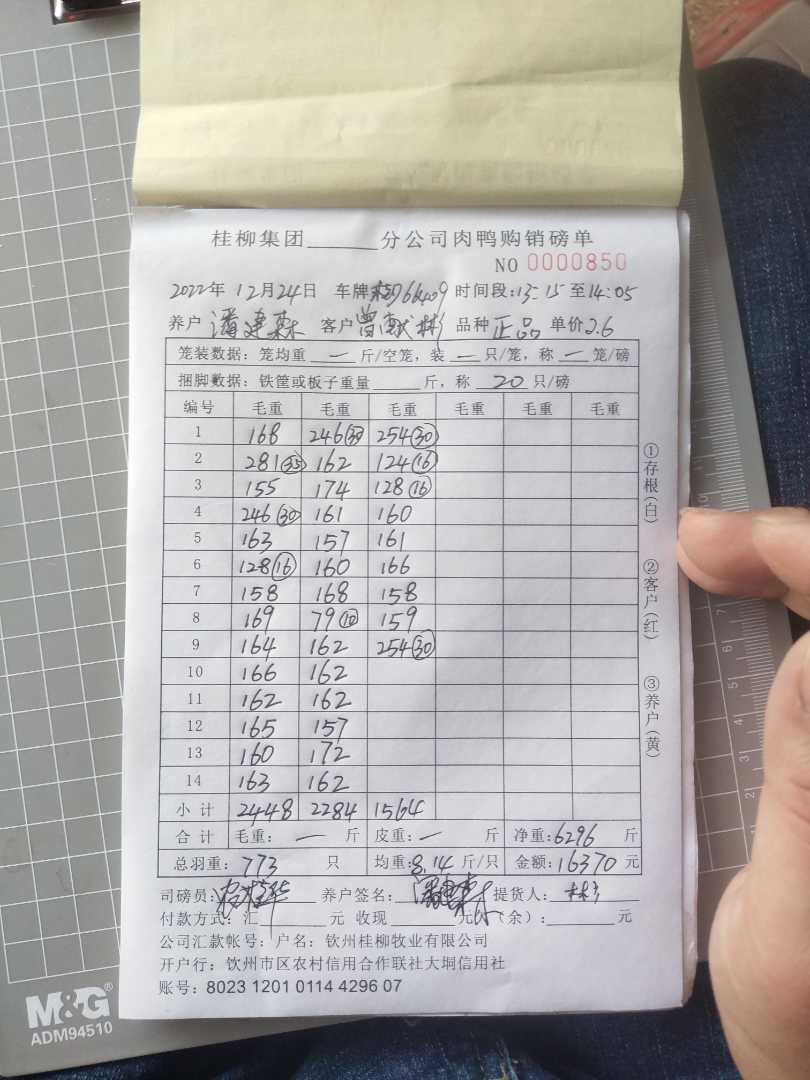 桂柳集团______分公司肉鸭购销磅单
NO 0000850
2022年12月24日 车牌 时间段:13:15至14:05
养户 潘建森 客户 曾献彬 品种 正品 单价2.6
笼装数据：笼均重 — 斤/空笼，装 — 只/笼，称 — 笼/磅
捆脚数据：铁筐或板子重量____斤，称 20 只/磅
编号 毛重 毛重 毛重 毛重 毛重 毛重
1 168 246(30) 254(30)
2 281(35) 162 124(16)
3 155 174 128(16)
4 246(30) 161 160
5 163 157 161
6 128(16) 160 166
7 158 168 158
8 169 79(10) 159
9 164 162 254(30)
10 166 162
11 162 162
12 165 157
13 160 172
14 163 162
小计 2448 2284 1564
合计 毛重：— 斤 皮重：— 斤 净重：6296 斤
总羽重：773 只 均重：8.14 斤/只 金额：16370 元
司磅员： 养户签名： 提货人：
付款方式：汇______元 收现______元欠（余）：______元
公司汇款帐号：户名：钦州桂柳牧业有限公司
开户行：钦州市区农村信用合作联社大垌信用社
账号：8023 1201 0114 4296 07
①存根(白)
②客户(红)
③养户(黄)
M&G®
ADM94510